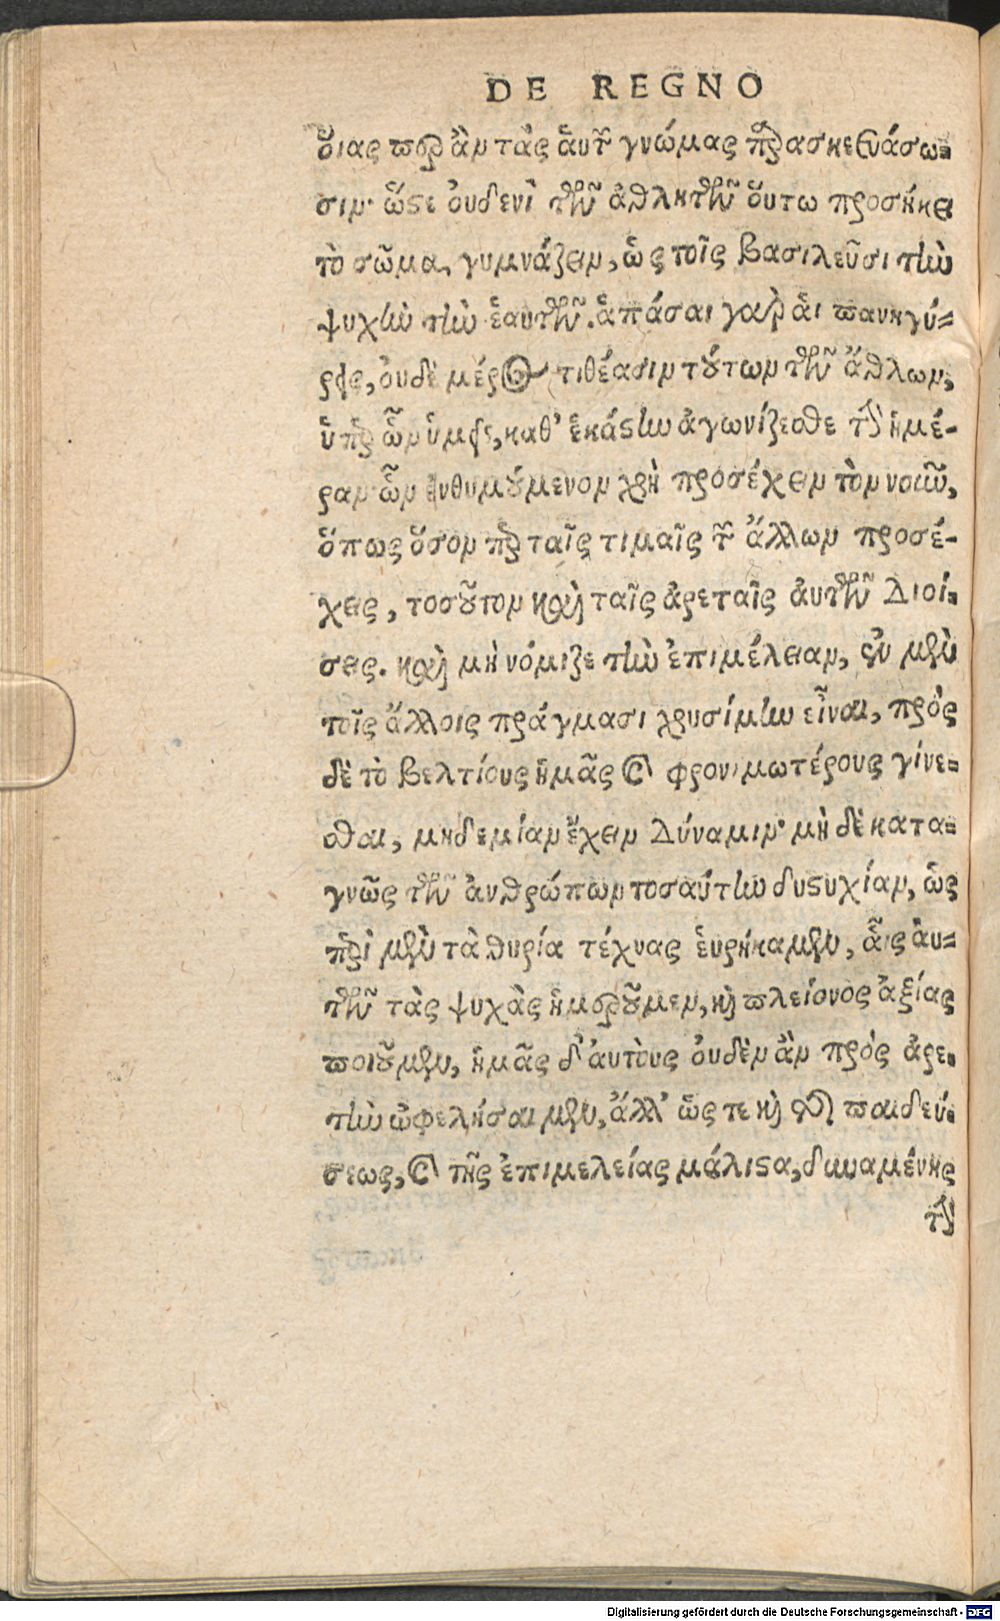 DE REGNO
ὅιας περ ἂν τὰς ἁυτῶν γνώμας παρασκευάσω-
σιν· ὥστε ὀυδενὶ τῶν ἀθλητῶν ὅυτω προσήκει
τὸ σῶμα, γυμνάζειν, ὡς τοῖς βασιλεῦσι τὴν
ψυχὴν τὴν ἑαυτῶν. ἁπάσαι γαρ ἁι πανηγύ-
ρεις, ὀυδὲ μέρος τιθέασιν τούτων τῶν ἄθλων,
ὑπὲρ ὧν ὑμεῖς, καθ' ἑκάστην ἀγωνίζεσθε τὴν ἡμέ-
ραν· ὧν ἐνθυμούμενον χρὴ προσέχειν τὸν νοῦν,
ὅπως ὅσον περ ταῖς τιμαῖς τῶν ἄλλων προσέ-
χεις, τοσοῦτον καὶ ταῖς ἀρεταῖς ἀυτῶν διοί-
σεις. καὶ μὴ νόμιζε τὴν ἐπιμέλειαν, ἐν μὲν
τοῖς ἄλλοις πράγμασι χρυσίμην εἶναι, πρὸς
δὲ τὸ βελτίους ἡμᾶς καὶ φρονιμωτέρους γίνε-
σθαι, μηδεμίαν ἔχειν δύναμιν· μὴ δὲ κατα-
γνῶς τῶν ἀνθρώπων τοσαύτην δυστυχίαν, ὡς
περὶ μὲν τὰ θυρία τέχνας ἑυρήκαμεν, ἇις ἀυ-
τῶν τὰς ψυχὰς ἡμεροῦμεν, καὶ πλείονος ἀξίας
ποιοῦμεν, ἡμᾶς δ' ἀυτοὺς ὀυδὲν ἂν πρὸς ἀρε-
τὴν ὠφελήσαιμεν, ἄλλ' ὥς τε καὶ τῆς παιδεύ-
σεως, καὶ τῆς ἐπιμελείας μάλιστα, δυναμένης
τὴν
Digitalisierung gefördert durch die Deutsche Forschungsgemeinschaft - DFG